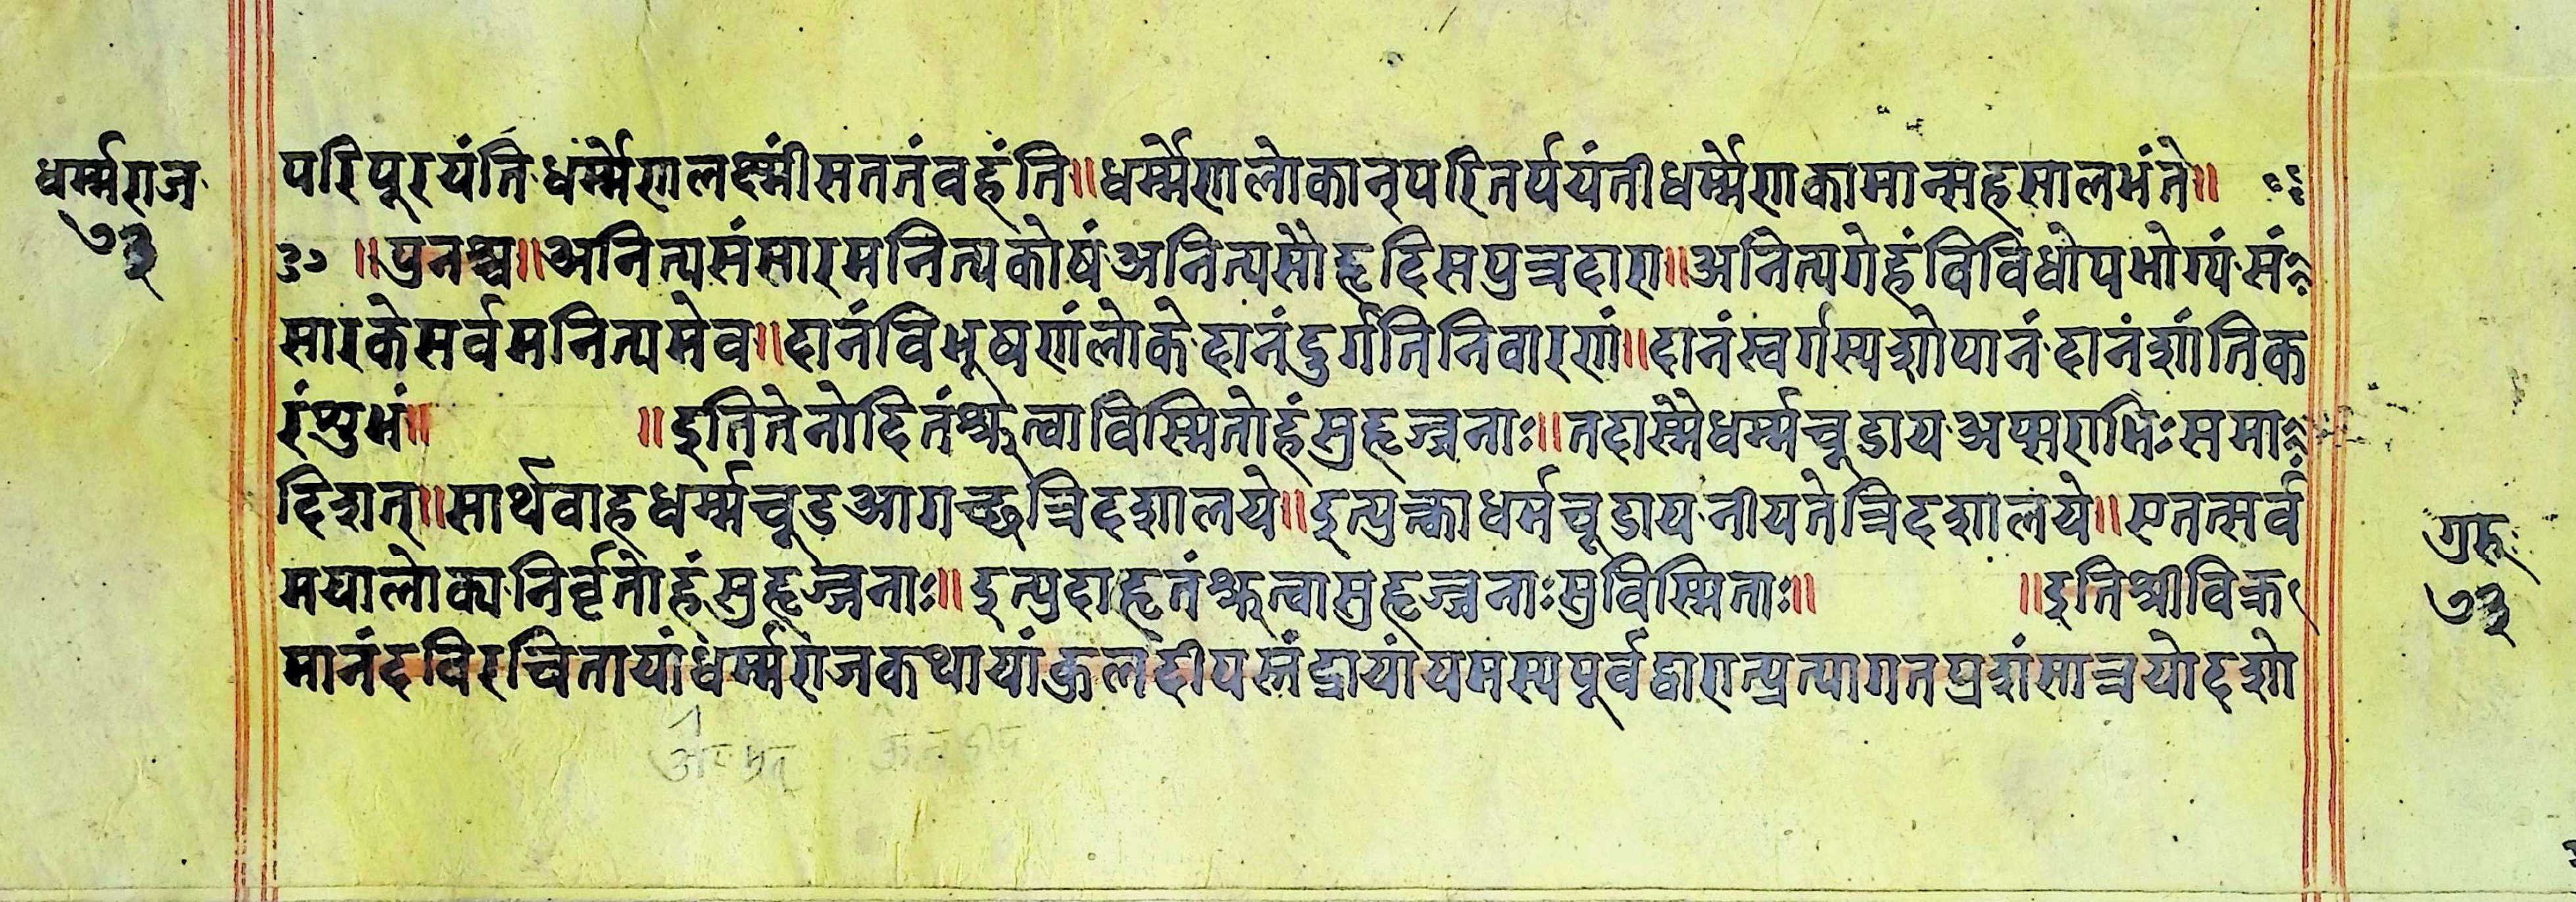 धर्म्मराज
७३
परिपूरयंति धर्म्मेणलक्ष्मीसततंवहंति॥धर्म्मेणलोकान्परितर्पयंतीधर्म्मेणकामान्सहसालभंते॥
३० ॥पुनश्च॥अनित्यसंसारमनित्यकोषं अनित्यसौहृदिसपुत्रदारा॥अनित्यगेहंविविधोपभोग्यं सं
सारकेसर्वमनित्यमेव॥दानंविभूषणंलोके दानंदुर्गतिनिवारणं॥दानंस्वर्गस्यशोपानं दानंशांतिक
रंशुभं॥ ॥इतितेनोदितंश्रुत्वाविस्मितोहंसुहृज्जनाः॥तदास्मैधर्म्मचूडाय अप्सराभिःसमा
दिशत्॥सार्थवाहधर्म्मचूडआगच्छत्रिदशालये॥इत्युक्त्वाधर्मचूडाय नीयतेत्रिदशालये॥एतत्सर्वं
मयालोक्य निर्वृतोहंसुहृज्जनाः॥इत्युदाहृतंश्रुत्वासुहृज्जनाःसुविस्मिताः॥ ॥इतिश्रीविक्र
मानंदविरचितायांधर्म्मराजकथायांकुलदीपस्तंद्रायांयमस्यपूर्वद्वारात्प्रत्यागतप्रशंसात्रयोदशो
गुरुः
७३